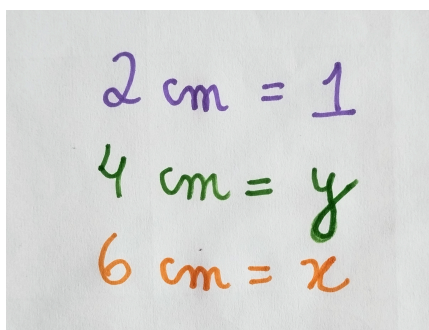 2 cm = 1
4 cm = y
6 cm = x